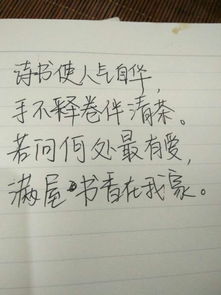 诗书使人气自华，
手不释卷伴清茶。
若问何处最有爱，
满屋书香在我家。